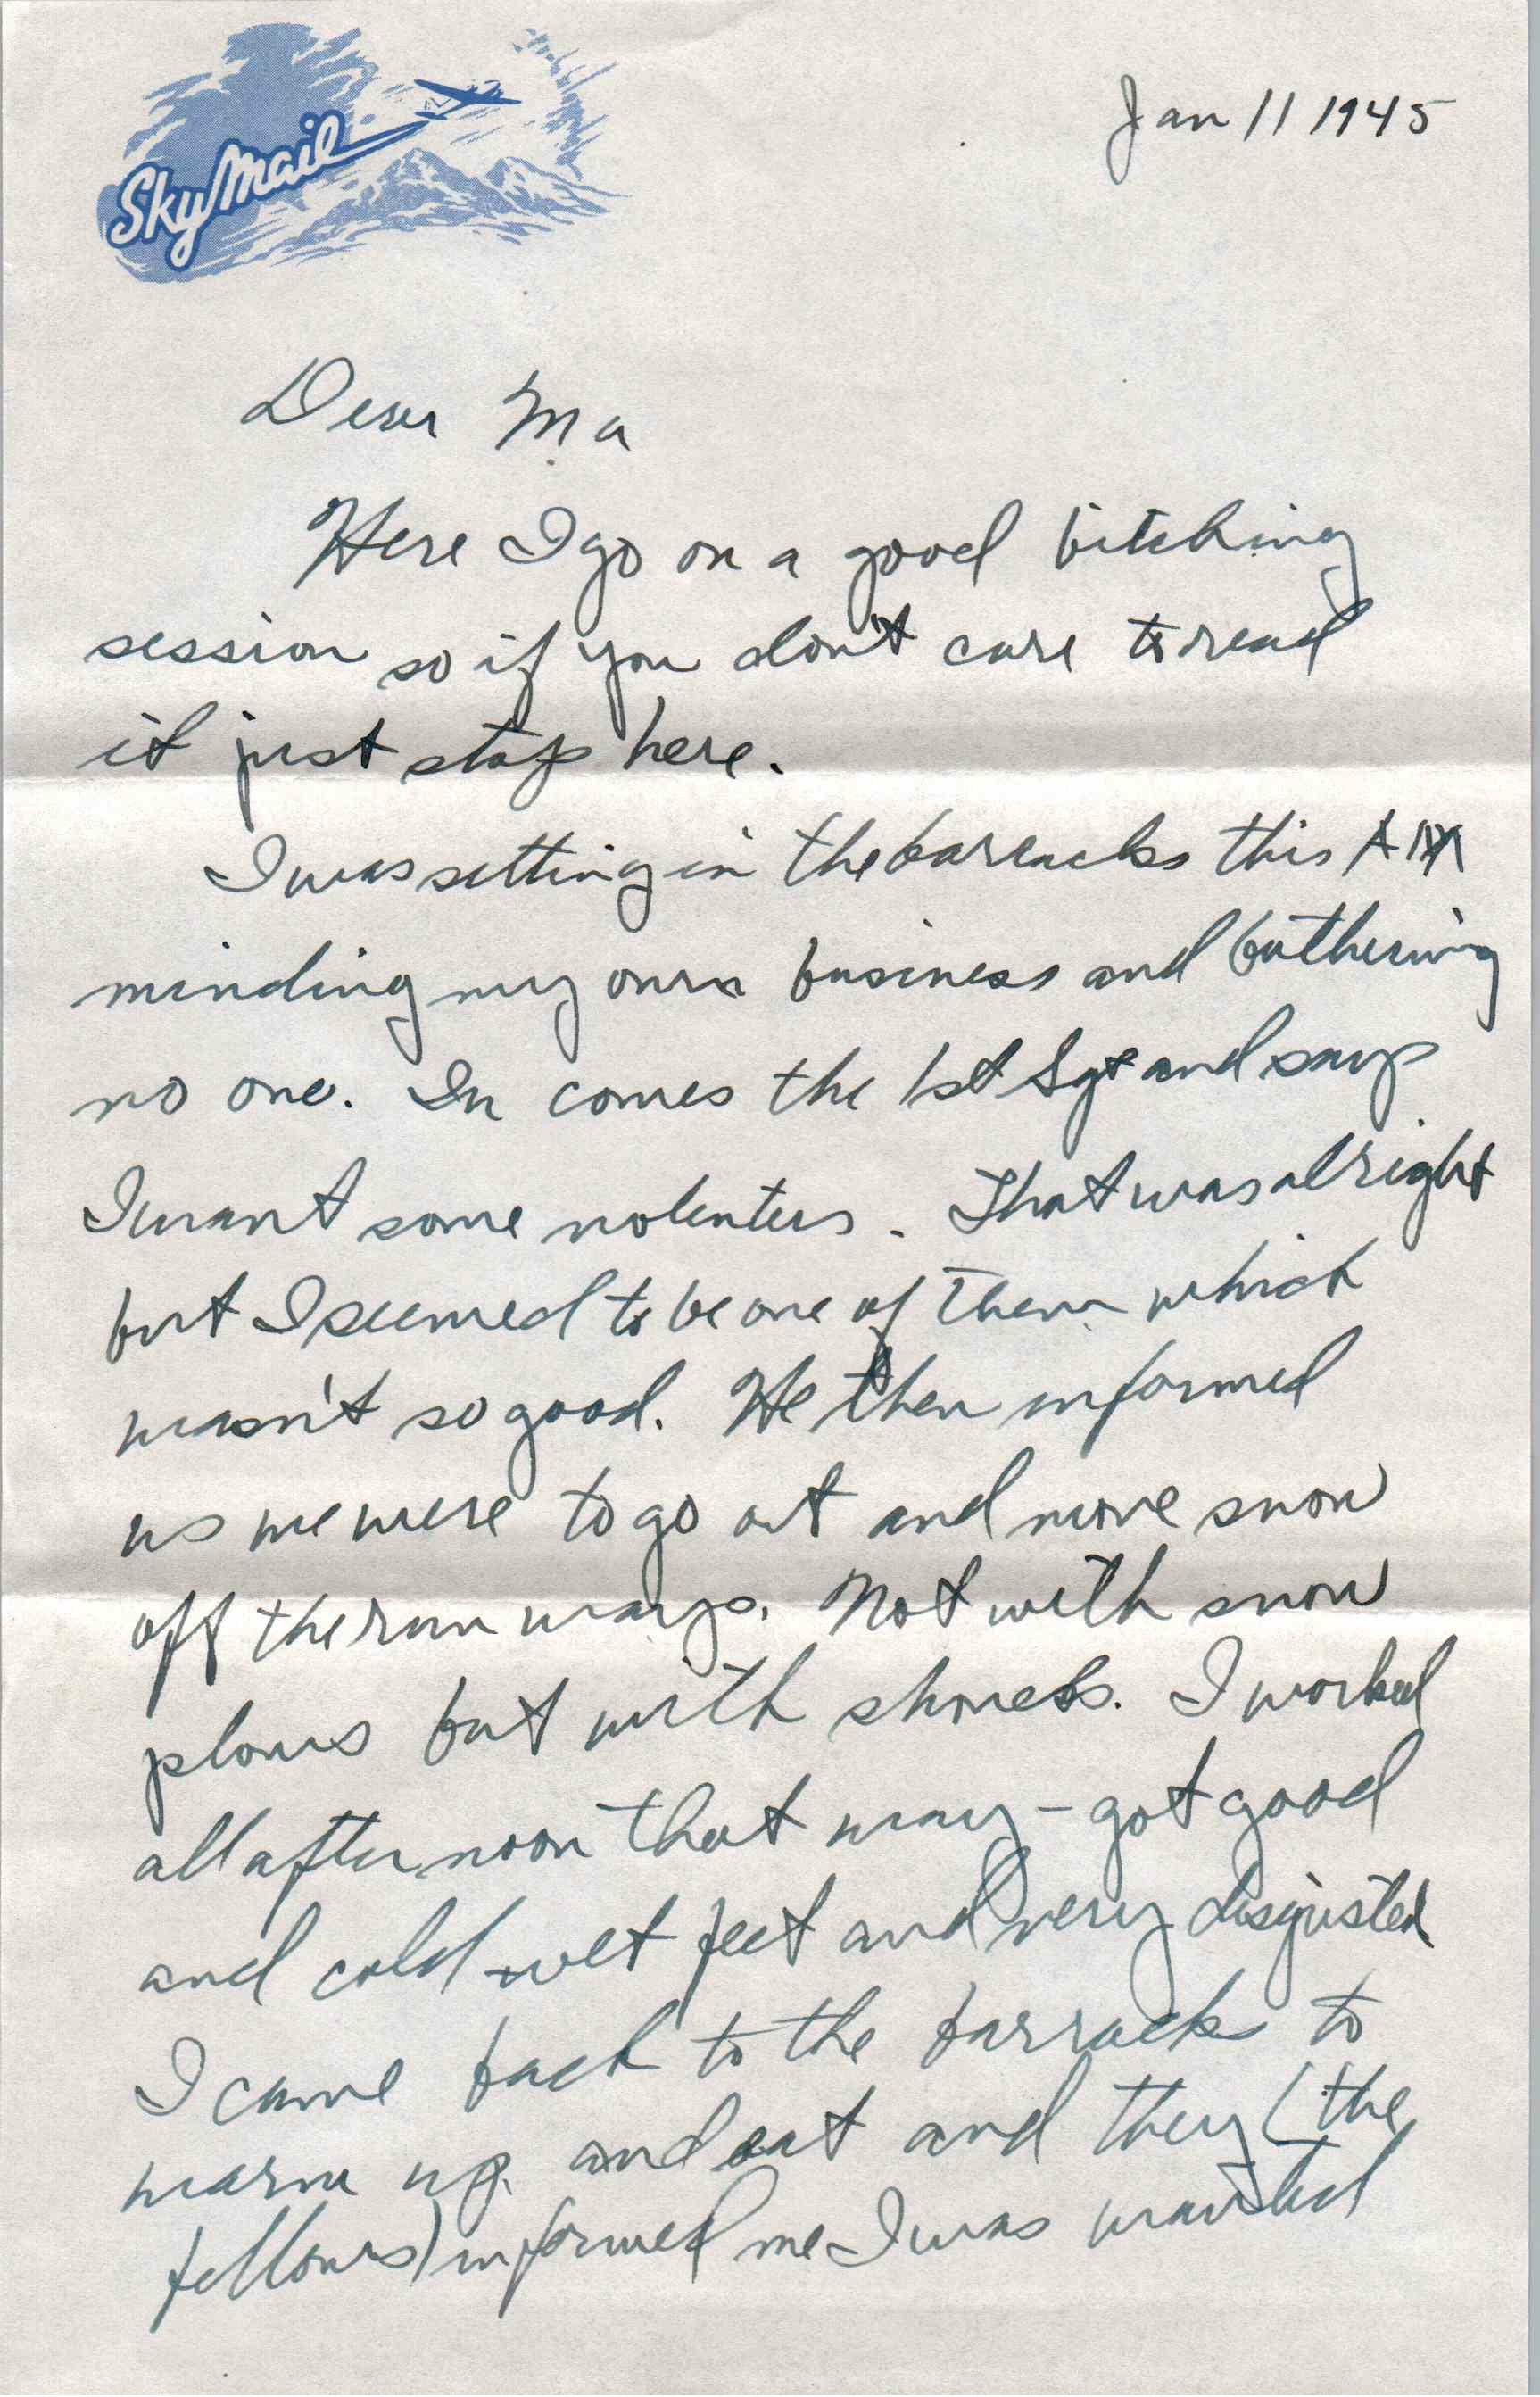 SkyMail
Jan 11 1945
Dear Ma
Here I go on a good bitching
session so if you don't care to read
it just stop here.
I was setting in the barracks this AM
minding my own business and bothering
no one. In comes the 1st Sgt and says
I want some volenters. That was alright
but I seemed to be one of them which
wasn't so good. He then informed
us we were to go out and move snow
off the run ways. Not with snow
plows but with shovels. I worked
all afternoon that way - got good
and cold wet feet and very disgusted
I came back to the barracks to
warm up. and eat and they (the
fellows) informed me I was wanted